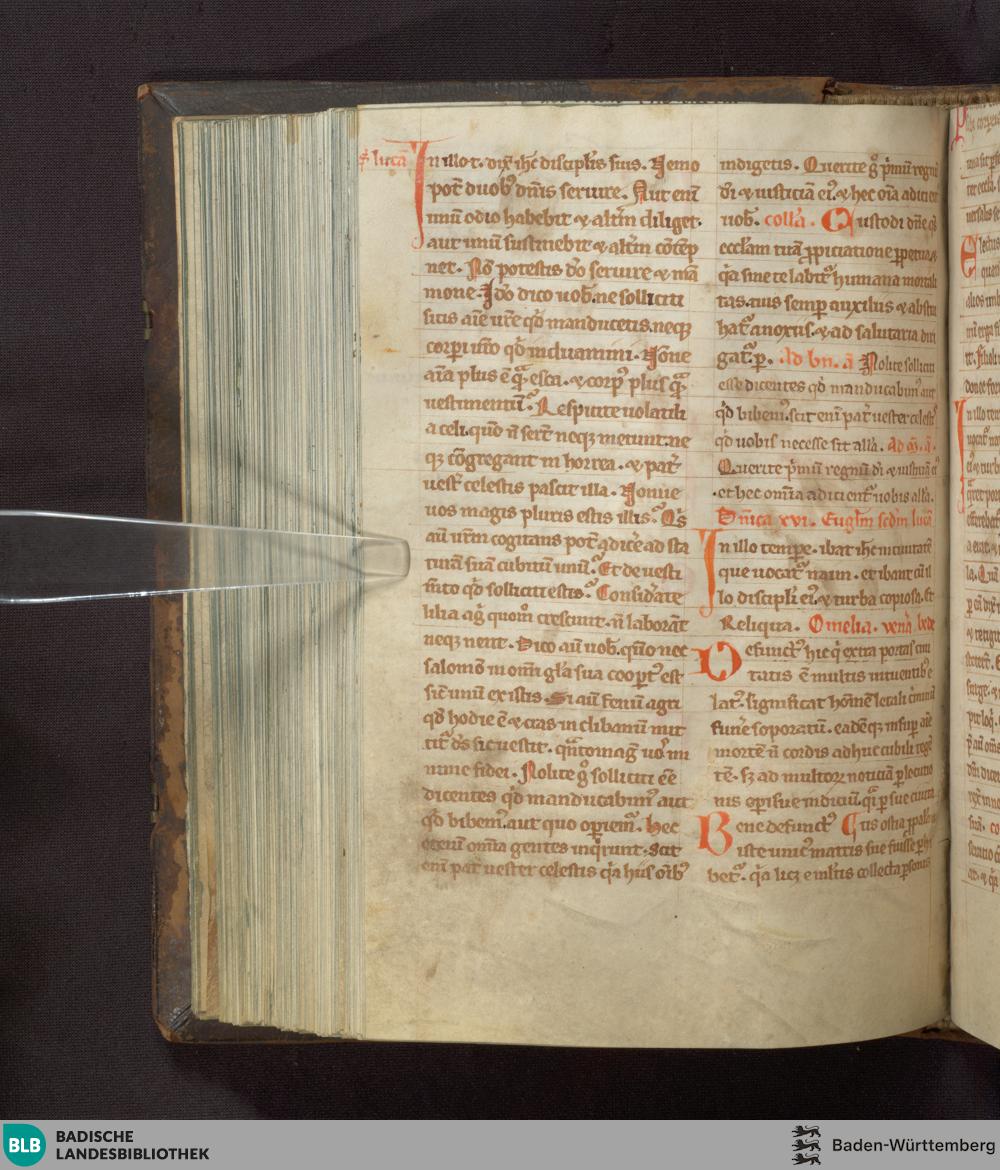 s. lucā
In illo t. dix̄ ih̄c discipl̄is suis. Nemo
pot̄ duob᷒ dn̄is seruire. Aut eni
unū odio habebit ⁊ alt̄m diliget.
aut unū sustinebit ⁊ alt̄m cōtēp
net. Nō potestis d̄o seruire ⁊ mā
mone. Ido dico uob̄. ne solliciti
sitis aīe ur̄e qd̄ manducetis. neq̨
corpi ur̄o qd̄ induamini. Nōne
aīa plus ē q̄ esca. ⁊ corp᷒ plus q̄
uestimentū. Respicite uolatili
a celi. quō n̄ ser̄t neq̨ metunt. ne
q̨ cōgregant in horrea. ⁊ pat̄
uest̄ celestis pascit illa. Nonne
uos magis pluris estis illis. Q's
aū ur̄m cogitans pot̄ adice᷑ ad sta
turā suā cubitū unū. Et de uesti
m̄to qd̄ solliciti estis. Considate
lilia aḡ quom̄ crescunt. n̄ laborāt
neq̨ nent. Dico aū uob̄. qn̄io nec
salomō in om̄i gl̄a sua coopt̄ est
sic̄ unū ex istis. Si aū fenū agri
qd̄ hodie ē ⁊ cras in clibanū mit
tit̄ d̄s sic uestit. q̄ntomaḡ uos mi
nime fidei. Nolite g̊ solliciti ēe
dicentes qd̄ manducabim᷒ aut
qd̄ bibem᷒. aut quo opiem᷒. hec
etenī om̄ia gentes inq̄runt. Scit
eni pat̄ uester celestis q̄a hiis om̄ib᷒
indigetis. Querite g̊ pmū regnū
d̄i ⁊ iusticiā ei᷒. ⁊ hec oīa adicient
uob̄. coll̄a. Custodi dn̄e q̄s
eccl̄am tuā ppiciatione ppetua. ⁊
q̄a sine te labit̄ humana mortali
tas. tuis semp auxiliis ⁊ abstra
hat̄ a noxiis. ⁊ ad salutaria diri
gat̄. p. Ad bn̄. ā Nolite solliciti
esse dicentes qd̄ manducabim᷒ aut
qd̄ bibem᷒. scit eni pat̄ uester celest᷒
qd̄ uobis necesse sit all̄a. Ad m̄. ā.
Querite pmū regnū d̄i ⁊ iustitiā ei᷒
et hec om̄ia adicient̄ uobis all̄a.
Dn̄ica xvi. Eugl̄m scd̄m lucā
In illo tempe. ibat ih̄c in ciuitatē
que uocat̄ naim. et ibant cū il
lo discipl̄i ei᷒. ⁊ turba copiosa. Et
Reliqua. Omelia. ven̄. bede
Defunct᷒ hic q̄ extra portas ciui
tatis ē multis intuentib᷒ e
lat᷒. significat hoīnē letali criminū
fune᷑ soporatū. eadēq̨ insup aīe
mortē n̄ cordis adhuc cubili tege
tē. s̨ ad multoꝝ noticiā p locutio
nis opisue indiciū. q̄i p sue ciuita
Bene defunct᷒ tis ostia ppalātē
iste unic᷒ matris sue fuisse phi
bet̄. q̄a licꝫ e mltis collecta psonis
BLB
BADISCHE
LANDESBIBLIOTHEK
Baden-Württemberg